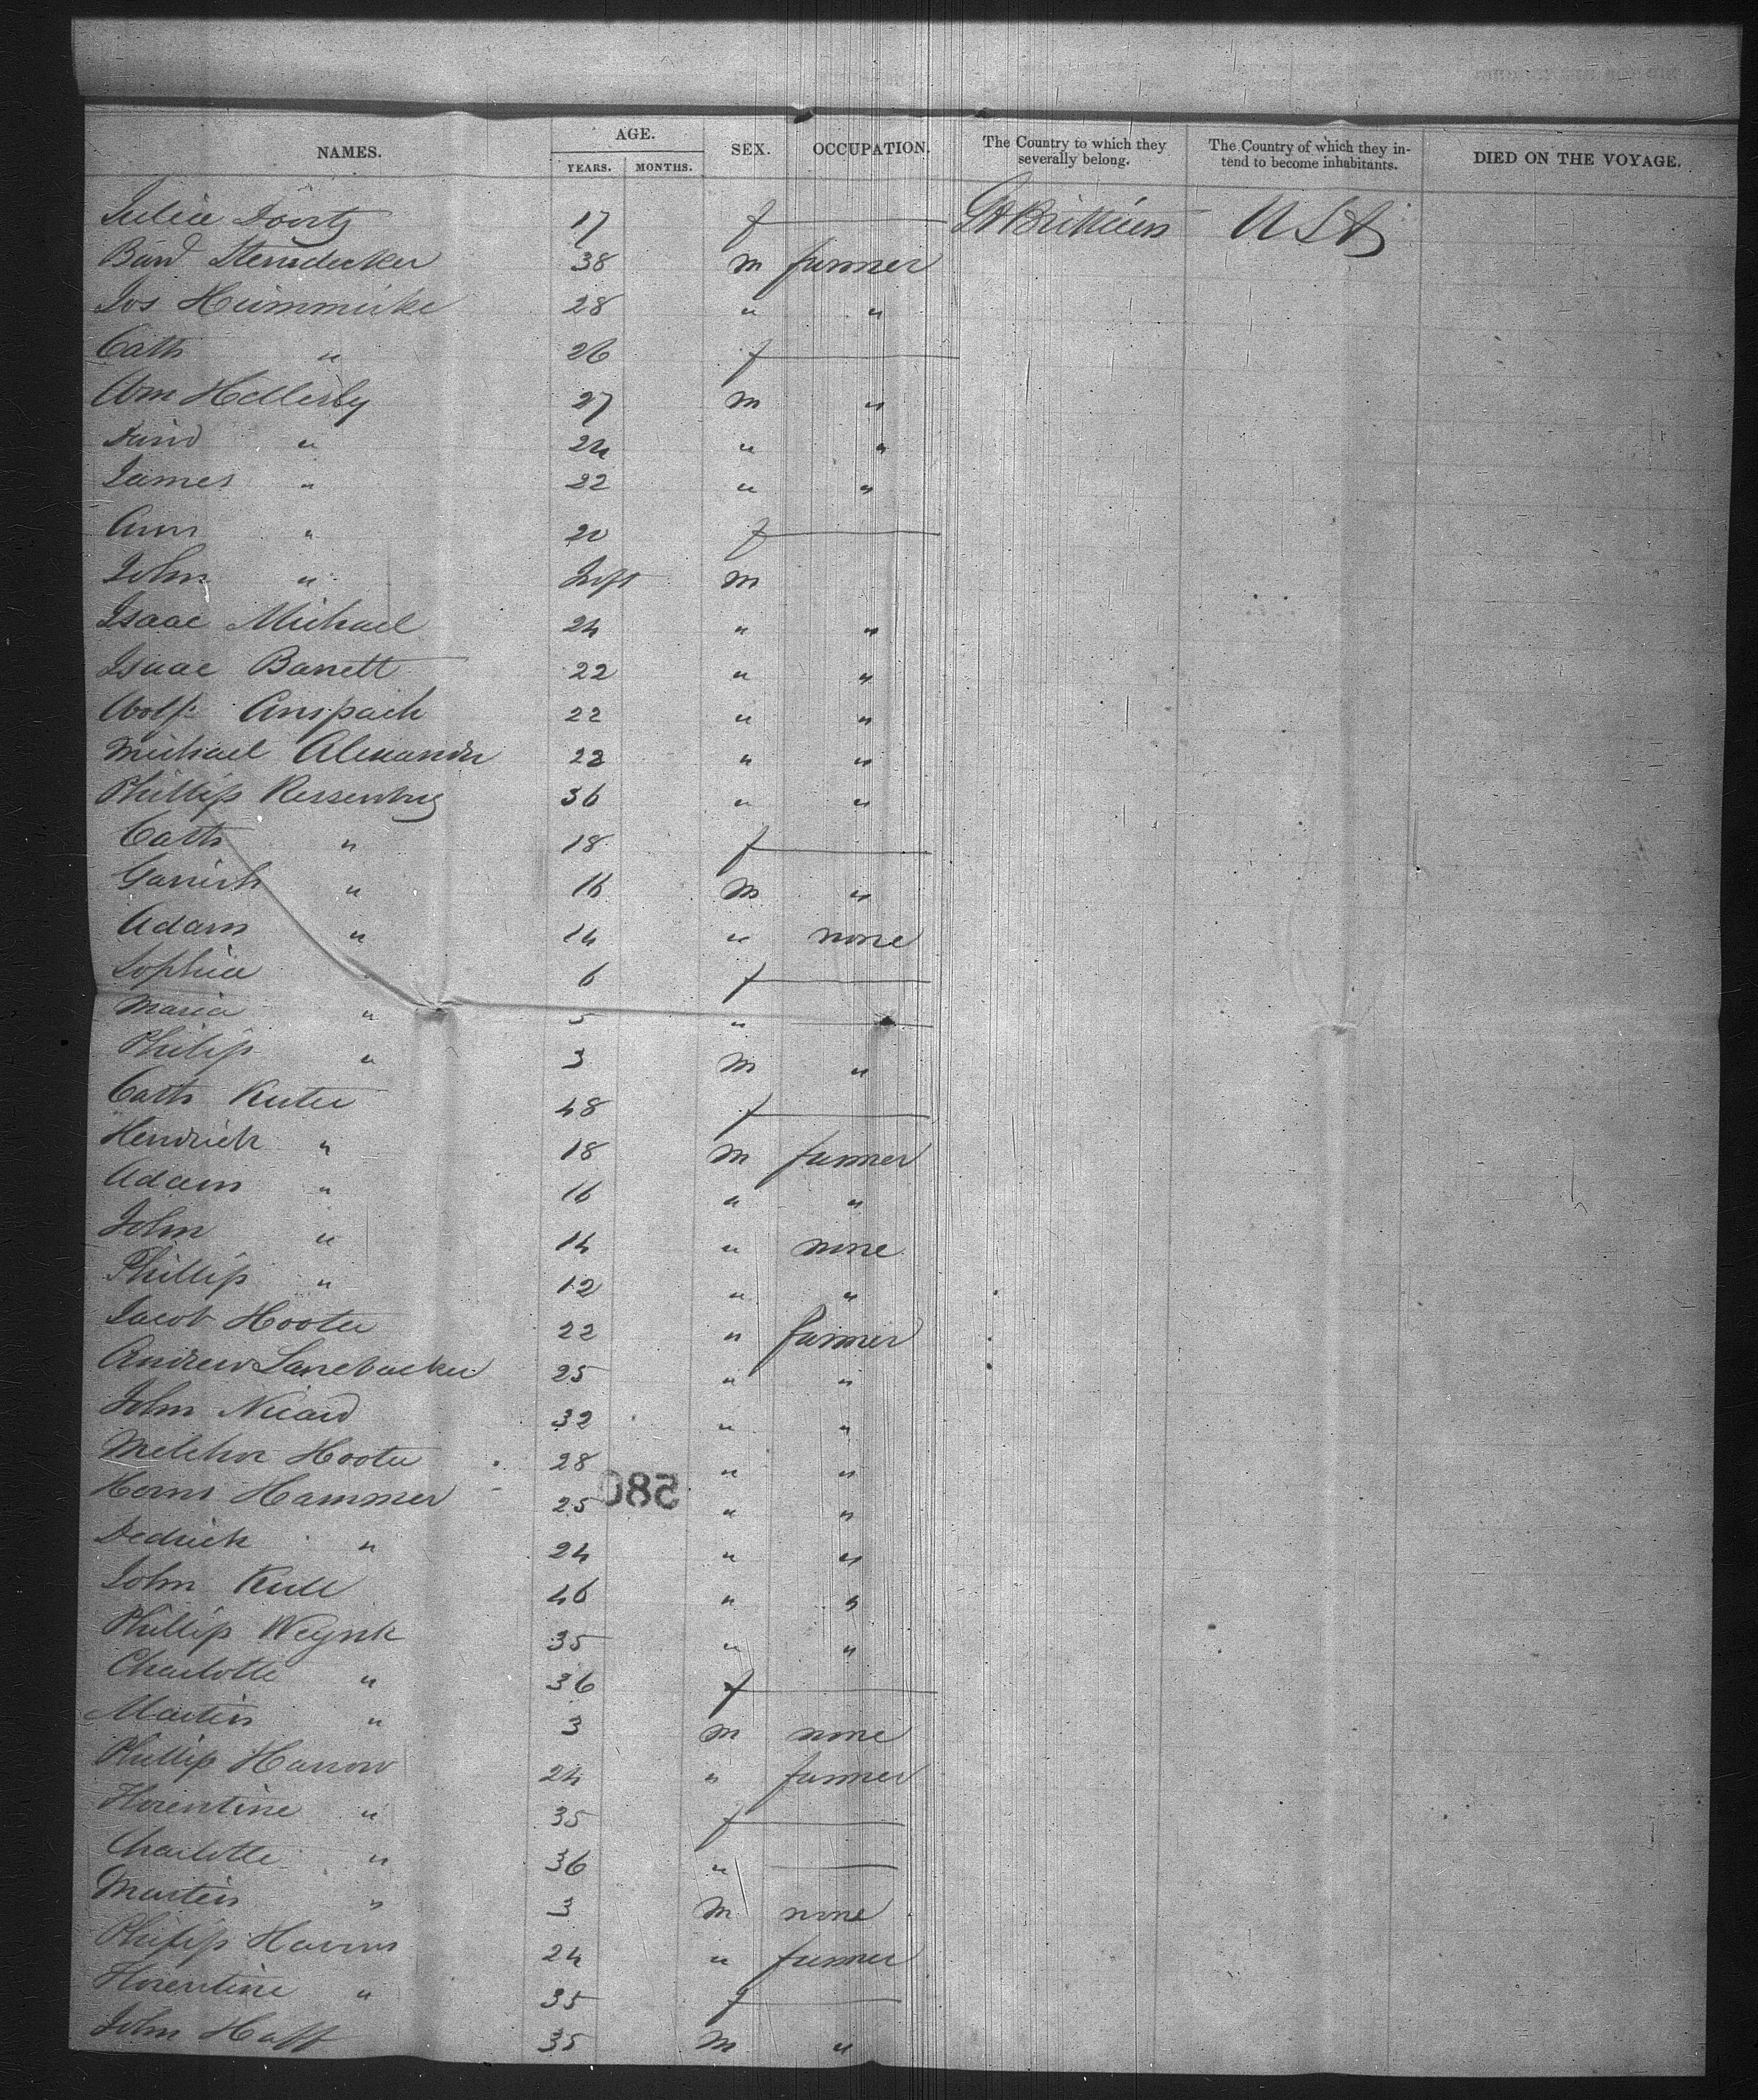 NAMES. AGE. YEARS. MONTHS. SEX. OCCUPATION. The Country to which they severally belong. The Country of which they intend to become inhabitants. DIED ON THE VOYAGE.
Julia 17 f Gt Brittain U S A
38 m farmer
Jos 28 " "
Cath " 26 f
Wm Hellerby 27 m "
David " 24 " "
James " 22 " "
Ann " 20 f
John " Inft m
Isaac Michael 24 " "
Isaac Barrett 22 " "
Wolf Anspach 22 " "
Michael Alexander 22 " "
Phillip 36 " "
Cath " 18 f
" 16 m "
Adam " 14 " none
Sophia " 6 f
Maria " 5 "
Philip " 3 m "
Cath 48 f
Hendrick " 18 m farmer
Adam " 16 " "
John " 14 " none
Phillip " 12 " "
Jacob Hooter 22 " farmer
Andrew 25 " "
John 32 " "
Melchor Hooter 28 " "
580
Hammer 25 " "
Dedrick " 24 " "
John 46 " "
Phillip 35 " "
Charlotte " 36 f
Martin " 3 m none
Phillip Harrow 24 " farmer
Florentine " 35 f
Charlotte " 36 "
Martin " 3 m none
Philip 24 " farmer
Florentine " 35 f
John Haff 35 m "